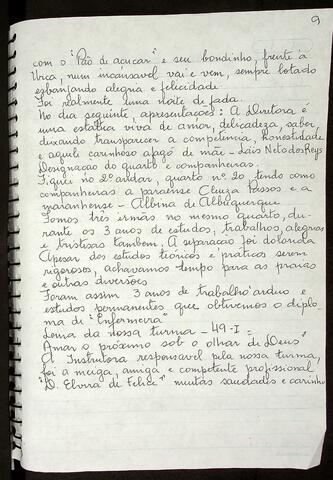 9
com o "Pão de açucar" e seu bondinho, frente à
Urca, num incansavel vai e vem, sempre lotado
esbanjando alegria e felicidade.
Foi realmente uma noite de fada.
No dia seguinte, apresentações: A Diretora é
uma estatua viva de amor, delicadeza, saber,
deixando transparecer a competencia, honestidade
e aquele carinhoso afago de mãe - Lais Neto dos Reys
Designação do quarto e companheiras.
Fiquei no 2º andar, quarto nº 20, tendo como
companheiras a paraense Cleuza Passos e a
maranhense - Albina de Albuquerque
Fomos três irmãs no mesmo quarto, du-
rante os 3 anos de estudos, trabalhos, alegrias
e tristezas tambem. A separação foi dolorida
Apesar dos estudos teóricos e práticos serem
rigorosos, achavamos tempo para as praias
e outras diversões
Foram assim 3 anos de trabalho arduo e
estudos permanentes que obtivemos o diplo-
ma de "Enfermeira"
Lema da nossa turma - 49-I =
Amar o próximo sob o olhar de Deus"
A Instrutora responsavel pela nossa turma,
foi a meiga, amiga e competente profissional
"D. Elvira de Felice" muitas saudades e carinho